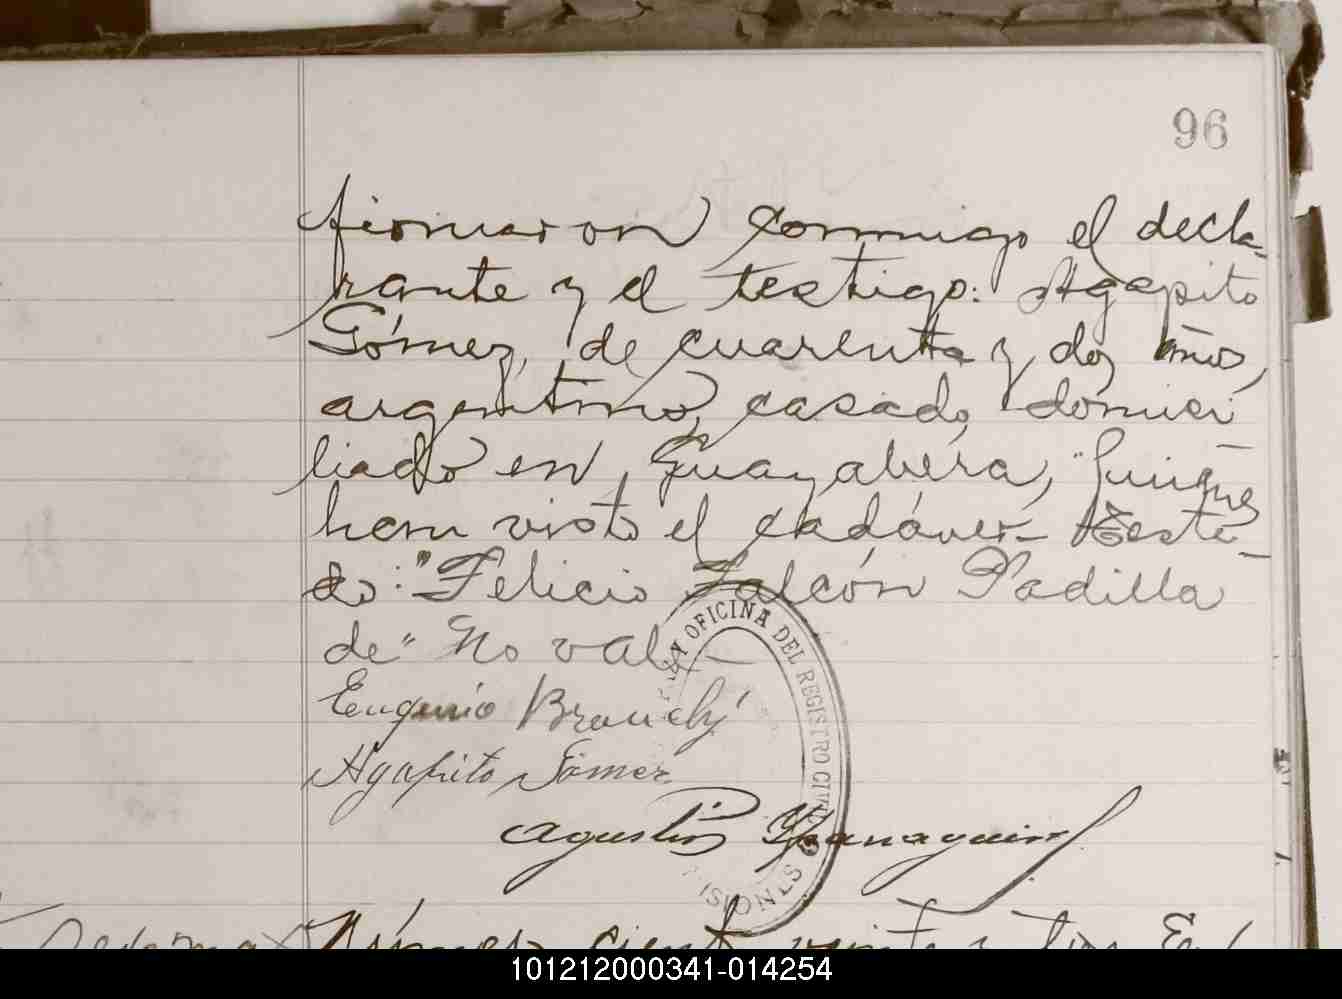 96
firmaron conmigo el decla-
rante y el testigo: Agapito
Gómez, de cuarenta y dos años,
argentino, casado, domici
liado en Guayabera, quienes
han visto el cadáver- Testa-
do: "Felicio Falcón Padilla
de" No vale-
Eugenio
Agapito Gómez
Agustín
OFICINA DEL REGISTRO CIVIL
MISIONES
Número ciento veinte y tres
101212000341-014254